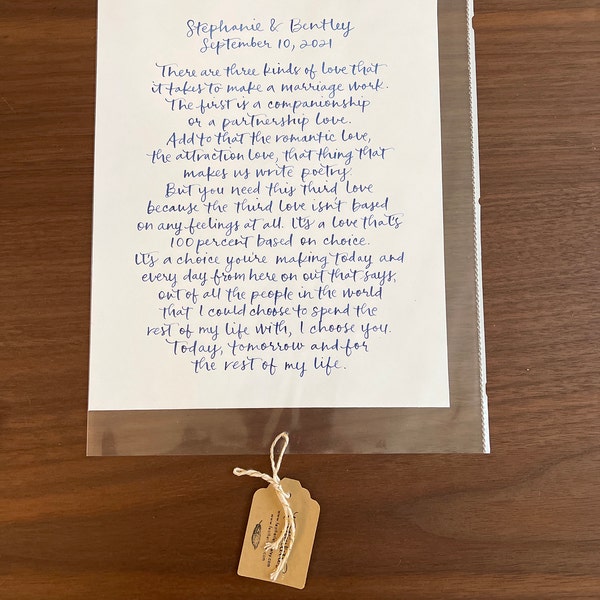 Stephanie & Bentley
September 10, 2021
There are three kinds of love that
it takes to make a marriage work.
The first is a companionship
or a partnership love.
Add to that the romantic love,
the attraction love, that thing that
makes us write poetry.
But you need this third love
because the third love isn't based
on any feelings at all. It's a love that's
100 percent based on choice.
It's a choice you're making today and
every day from here on out that says,
out of all the people in the world
that I could choose to spend the
rest of my life with, I choose you.
Today, tomorrow and for
the rest of my life.